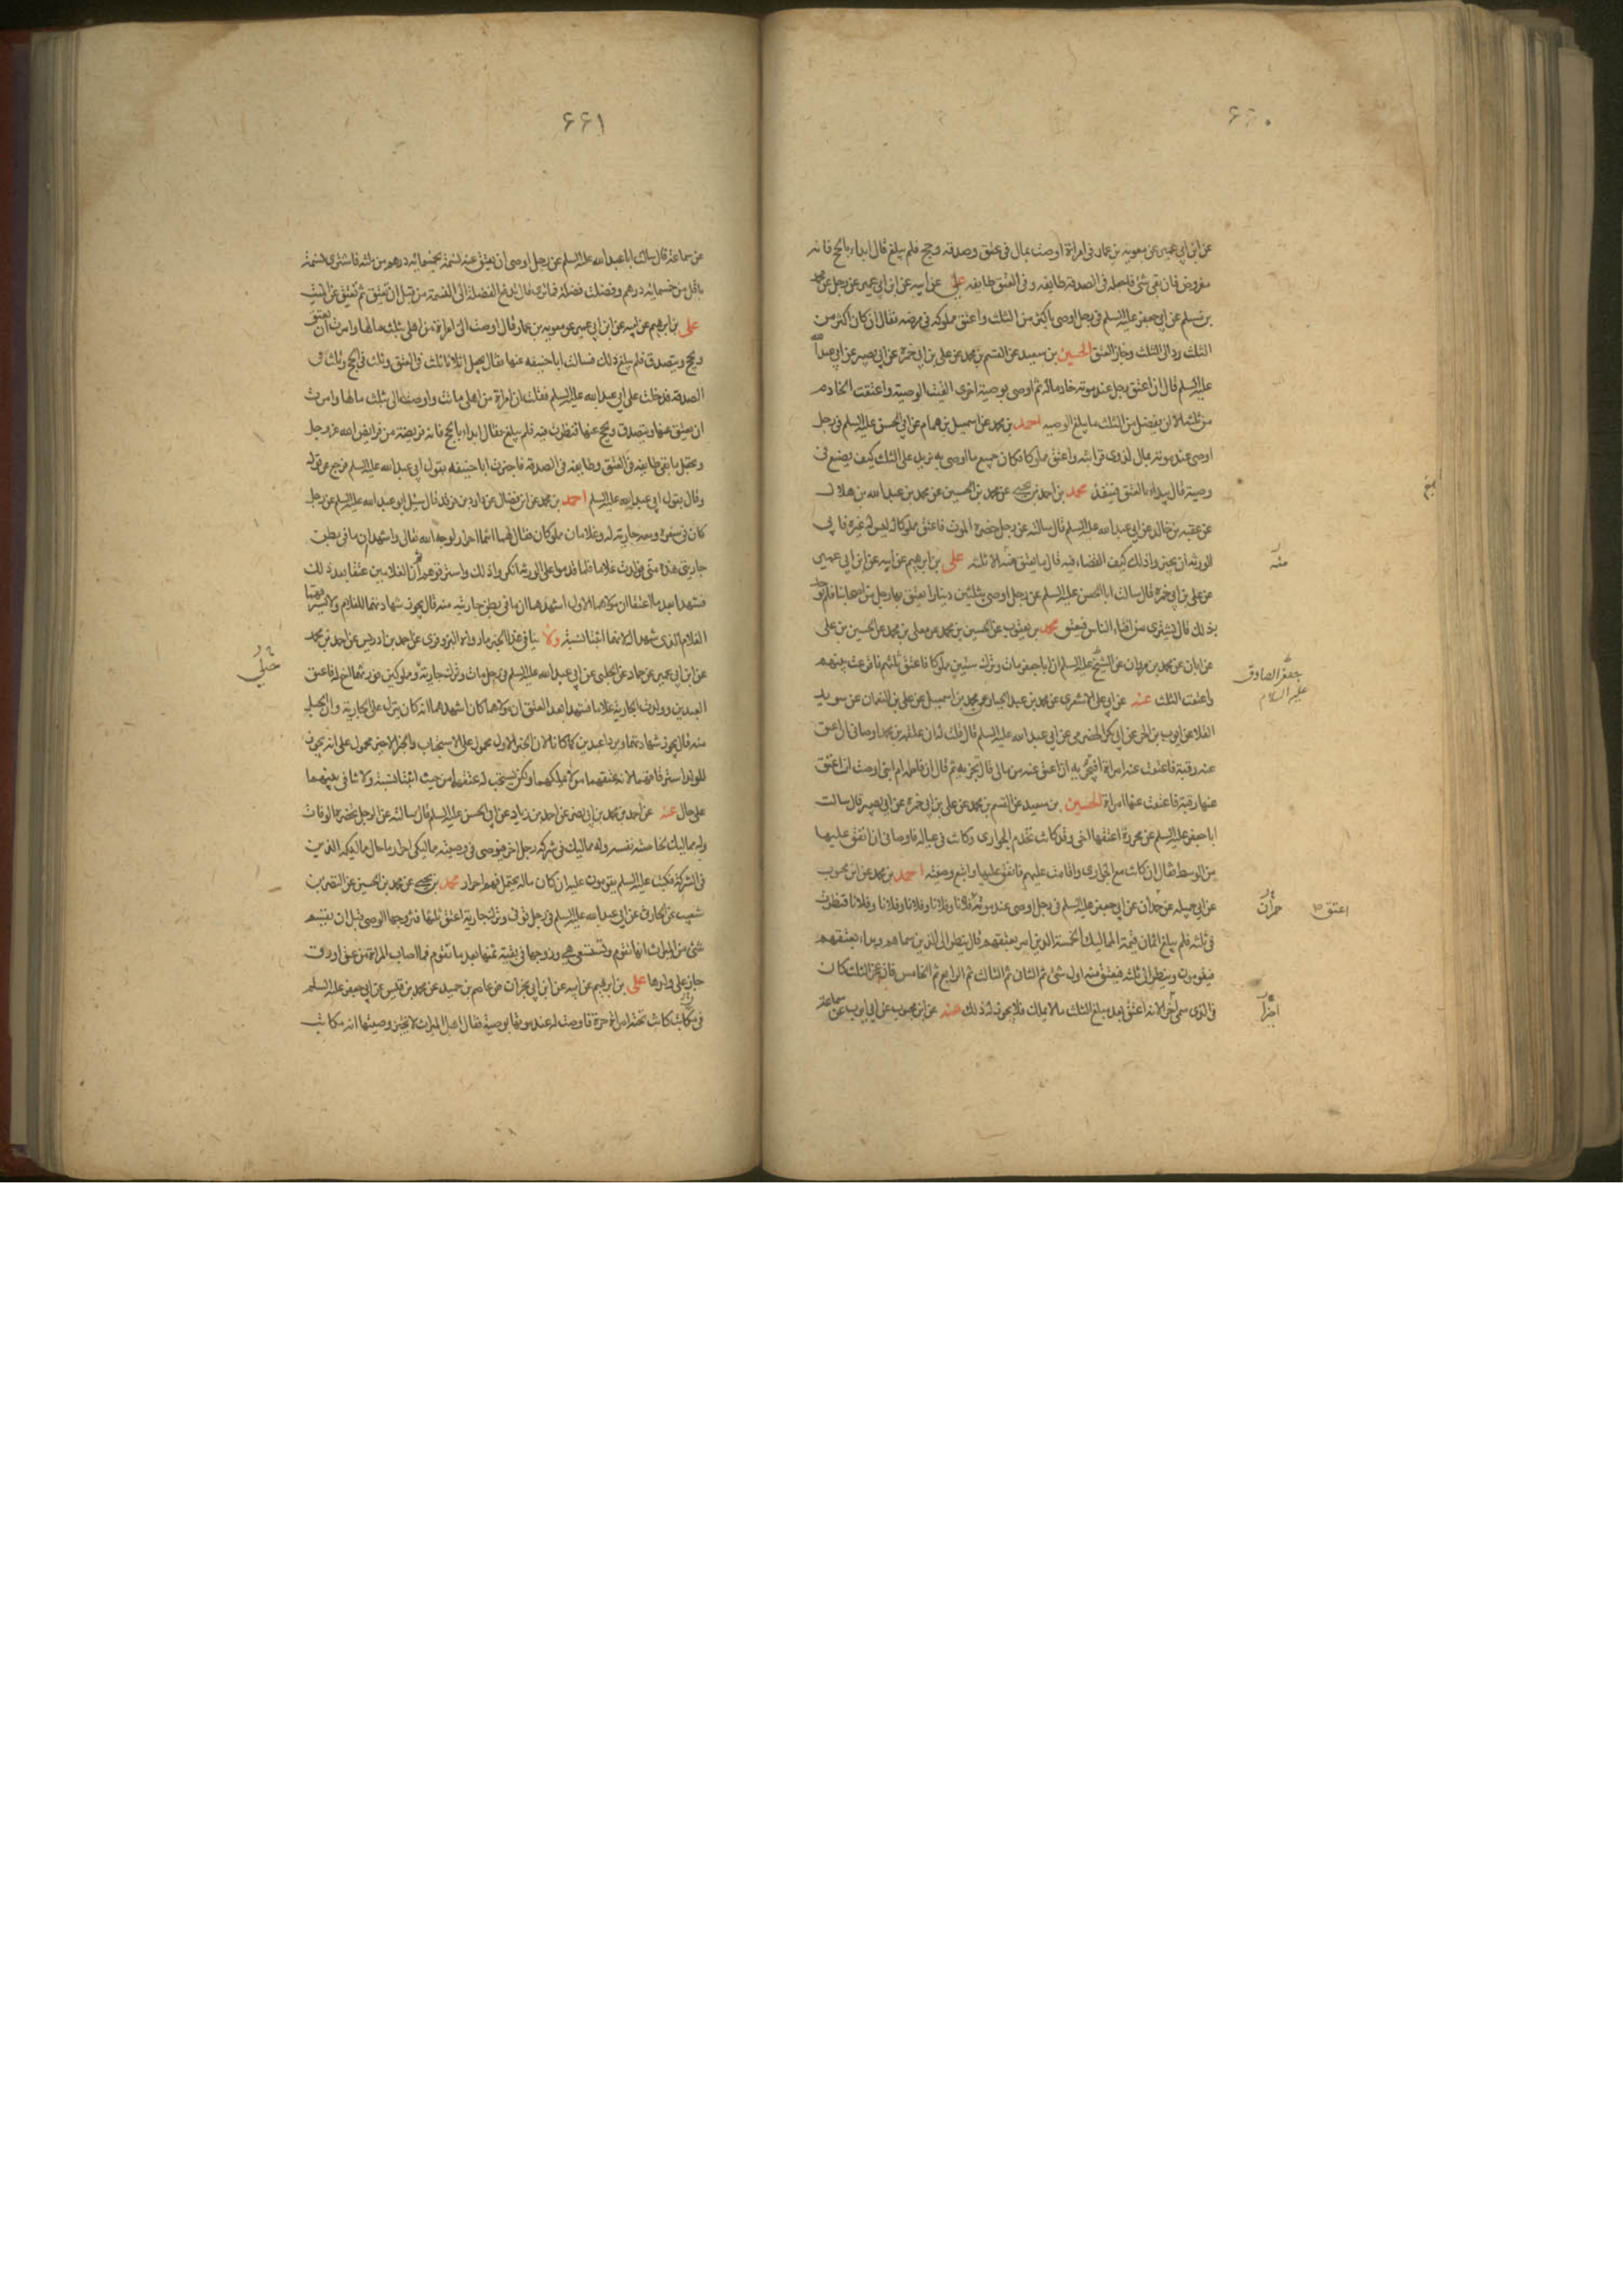 ۶۶۰
عن ابن ابي عمير عن معويه بن عمار في امراة اوصت بمال في عتق وصدقه وحج فلم يبلغ قال ابداء بالحج فانه
مفروض فان بقي شئ فاجعله في الصدقة طايفه وفي العتق طايفه علي عن ابيه عن ابن ابي عمير عن رجل عن محمد
بن مسلم عن ابي جعفر عليه السلم في رجل اوصى باكثر من الثلث واعتق مملوكه في مرضه فقال ان كان اكثر من
الثلث رد الى الثلث وجاز العتق الحسين بن سعيد عن القسم بن محمد عن علي بن ابي حمزه عن ابي بصير عن ابي عبد الله
عليه السلم قال ان اعتق رجل عند موته خادما له ثم اوصى بوصية اخرى الغيت الوصية واعتقت الخادم
من ثلثه الا ان يفضل من الثلث ما يبلغ الوصيه احمد بن محمد عن اسمعيل بن همام عن ابي الحسن عليه السلم في رجل
اوصى عند موته بمال لذوي قرابته واعتق مملوكا فكان جميع ما اوصى به يزيد على الثلث كيف يصنع في
وصيته قال يبداء بالعتق فينفذ محمد بن احمد بن يحيى عن محمد بن الحسين عن محمد بن عبد الله بن هلال
عن عقبه بن خالد عن ابي عبد الله عليه السلم قال سالته عن رجل حضره الموت فاعتق مملوكا له ليس له غيره فابى
الورثه ان يجيزوا ذلك كيف القضاء فيه قال ما يعتق منه الا ثلثه علي بن ابرهيم عن ابيه عن ابن ابي عمير
منه
عن علي بن ابي حمزه قال سالت ابا الحسن عليه السلم عن رجل اوصى بثلثين دينارا يعتق بها رجل من اصحابنا فلم يوجد
بذلك قال يشترى من افناء الناس فيعتق محمد بن يعقوب عن الحسين بن محمد عن معلى بن محمد عن الحسين بن علي
عن ابان عن محمد بن مروان عن الشيخ عليه السلم ان ابا جعفر مات وترك ستين مملوكا فاعتق ثلثهم فاقرعت بينهم
جعفر الصادق
عليه السلام
واعتقت الثلث عنه عن ابي علي الاشعري عن محمد بن عبد الجبار عن محمد بن اسمعيل عن علي بن النعمان عن سويد
القلا عن ايوب بن الحر عن ابي بكر الحضرمي عن ابي عبد الله عليه السلم قال قلت له ان علقمه بن محمد اوصاني ان اعتق
عنه رقبة فاعتقت عنه امراة افيجزيه او اعتق عنه من مالي قال يجزيه ثم قال ان فاطمه ام ابني اوصت ان اعتق
عنها رقبة فاعتقت عنها امراة الحسين بن سعيد عن القسم بن محمد عن علي بن ابي حمزه عن ابي بصير قال سالت
ابا جعفر عليه السلم عن محررة اعتقها اخي وقد كانت تخدم الجواري وكانت في عياله فاوصاني ان انفق عليها
من الوسط فقال ان كانت مع الجواري واقامت عليهم فانفق عليها واتبع وصيته احمد بن محمد عن ابن محبوب
عن ابي جميله عن حمران عن ابي جعفر عليه السلم في رجل اوصى عند موته فلانا وفلانا وفلانا وفلانا وفلانا فنظرت
حمران
اعتق
في ثلثه فلم يبلغ اثمان قيمة المماليك الخمسة الذين امر بعتقهم قال ينظر الى الذين سماهم ويبداء بعتقهم
فيقومون وينظر الى ثلثه فيعتق منه اول شئ ثم الثاني ثم الثالث ثم الرابع ثم الخامس فان عجز الثلث كان
في الذي سمى اخرا لانه اعتق بعد مبلغ الثلث ما لا يملك فلا يجوز له ذلك عنه عن ابن محبوب عن ابي ايوب عن سماعة
اخيرا
۶۶۱
عن سماعة قال سالت ابا عبد الله عليه السلم عن رجل اوصى ان يعتق عنه نسمة بخمسمائه درهم من ثلثه فاشترى نسمة
باقل من خمسمائه درهم وفضلت فضلة فما ترى قال تدفع الفضلة الى النسمة من قبل ان تعتق ثم تعتق عن الميت
علي بن ابرهيم عن ابيه عن ابن ابي عمير عن معويه بن عمار قال اوصت الي امراة من اهلي بثلث مالها وامرت ان يعتق
ويحج ويتصدق فلم يبلغ ذلك فسالت ابا حنيفه عنها فقال يجعل اثلاثا ثلث في العتق وثلث في الحج وثلث في
الصدقه فدخلت على ابي عبد الله عليه السلم فقلت ان امراة من اهلي ماتت واوصت الي بثلث مالها وامرت
ان يعتق عنها ويتصدق ويحج عنها فنظرت فيه فلم يبلغ فقال ابداء بالحج فانه فريضة من فرايض الله عز وجل
ويجعل ما بقي طايفه في العتق وطايفه في الصدقه فاخبرت ابا حنيفه بقول ابي عبد الله عليه السلم فرجع عن قوله
وقال بقول ابي عبد الله عليه السلم احمد بن محمد عن ابن فضال عن داود بن فرقد قال سئل ابو عبد الله عليه السلم عن رجل
كان في سفر ومعه جارية له وغلامان مملوكان فقال لهما انتما احرار لوجه الله تعالى واشهدا ان ما في بطن
جاريتي هذه مني فولدت غلاما فلما قدموا على الورثه انكروا ذلك واسترقوهم ثم ان الغلامين عتقا بعد ذلك
فشهدا بعد ما اعتقا ان مولاهما الاول اشهدهما ان ما في بطن جاريته منه قال يجوز شهادتهما للغلام ولا يسترقهما
الغلام الذي شهدا له لانهما اثبتا نسبه ولا ينافي هذا الخبر ما رواه البزوفري عن احمد بن ادريس عن احمد بن محمد
عن ابن ابي عمير عن حماد عن الحلبي عن ابي عبد الله عليه السلم في رجل مات وترك جارية ومملوكين فورثهما اخ له فاعتق
العبدين وولدت الجارية غلاما فشهدا بعد العتق ان مولاهما كان اشهدهما انه كان ينزل على الجارية وان الحبل
منه قال يجوز شهادتهما ويردا عبدين كما كانا لان الخبر الاول محمول على الاستحباب والخبر الاخير محمول على انه يجوز
للولد استرقاقهما لانه يعتقهما من لا يملكهما ولكن يستحب له عتقهما من حيث اثبتا نسبه ولا تنافي بينهما
على حال عنه عن احمد بن محمد بن ابي نصر عن احمد بن زياد عن ابي الحسن عليه السلم قال سالته عن الرجل تحضره الوفاة
وله مماليك لخاصة نفسه وله مماليك في شركة رجل اخر فيوصي في وصيته مماليكي احرار ما حال مماليكه الذين
في الشركة فكتب عليه السلم يقومون عليه ان كان ماله يحتمل فهم احرار محمد بن يحيى عن محمد بن الحسين عن النضر بن
شعيب عن الحارثي عن ابي عبد الله عليه السلم في رجل توفي وترك جارية اعتق ثلثها فتزوجها الوصي قبل ان يقسم
شئ من الميراث انها تقوم وتستسعى هي وزوجها في بقية ثمنها بعد ما تقوم فما اصاب المراة من عتق او رق
جاز على ولدها علي بن ابرهيم عن ابيه عن ابن ابي نجران عن عاصم بن حميد عن محمد بن قيس عن ابي جعفر عليه السلم
في مكاتب كانت تحته امراة حرة فاوصت له عند موتها بوصية فقال اهل الميراث لا نجيز وصيتها انه مكاتب